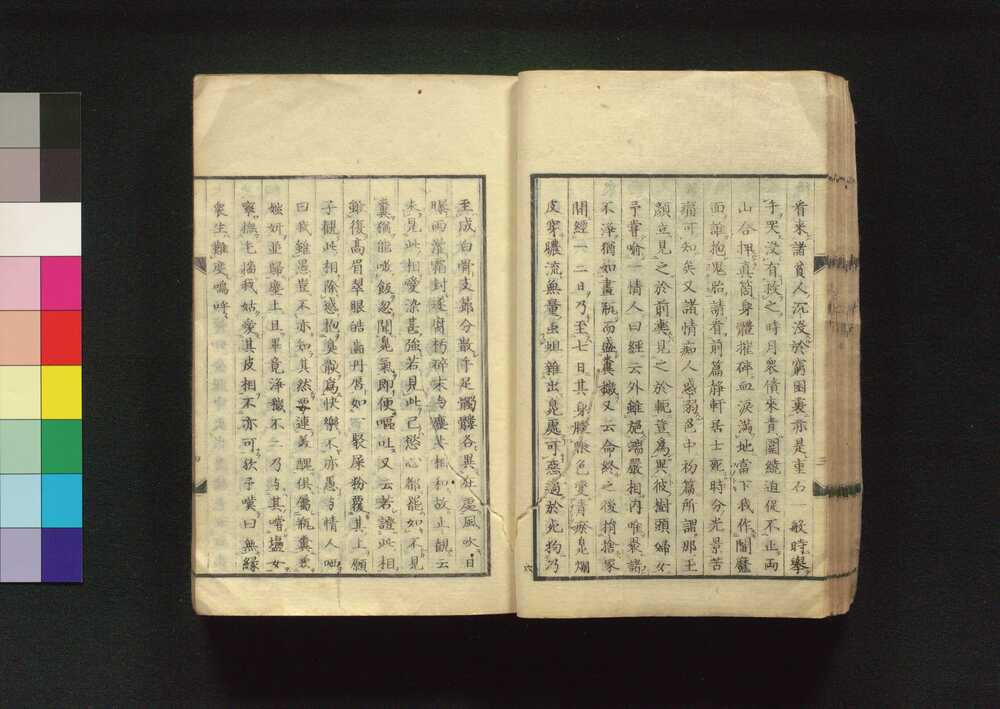 看来諸貧人沉沒於窮困裏亦是重石一般時擧
手哭没有救之時月衆債来責圍繞迫促不止両
山合押真箇身體摧碎血淚滿地當下我作閻魔
面誰抱鬼胎請看前篇靜軒居士死時分光景苦
痛可知矣又諸情痴人惑溺色中楊篇所謂那王
顏立見之於前輿見之於軛豈爲異彼樹頭婦女
予嘗喻一情人曰經云外雖施端嚴相內唯裹諸
不淨猶如畫瓶而盛糞穢又云命終之後捐捨冢
間經一二日乃至七日其身膖脹色變靑瘀臭爛
皮穿膿流無量虫蛆雜出臭處可惡過於死狗乃
至成白骨支節分散手足髑髏各異在處風吹日
曝雨灌霜封逐腐朽碎末与塵土相和故止観云
未見此相愛染甚強若見此已慾心都罷如不見
糞猶能噉飯忽聞臭氣即便嘔吐又云若證此相
雖復高眉翠眼皓歯丹唇如一聚屎粉覆其上願
子觀此相除惑抱臭骸爲快樂不亦愚与情人咄
曰我雖愚豈不亦知其然要連美醜俱儞瓶糞惹
媸妍並歸塵土且畢竟淨穢不二乃与其嚐塩女
寧撫毛嬙我姑愛其皮相不亦可欤予嘆曰無緣
衆生難度嗚呼
六